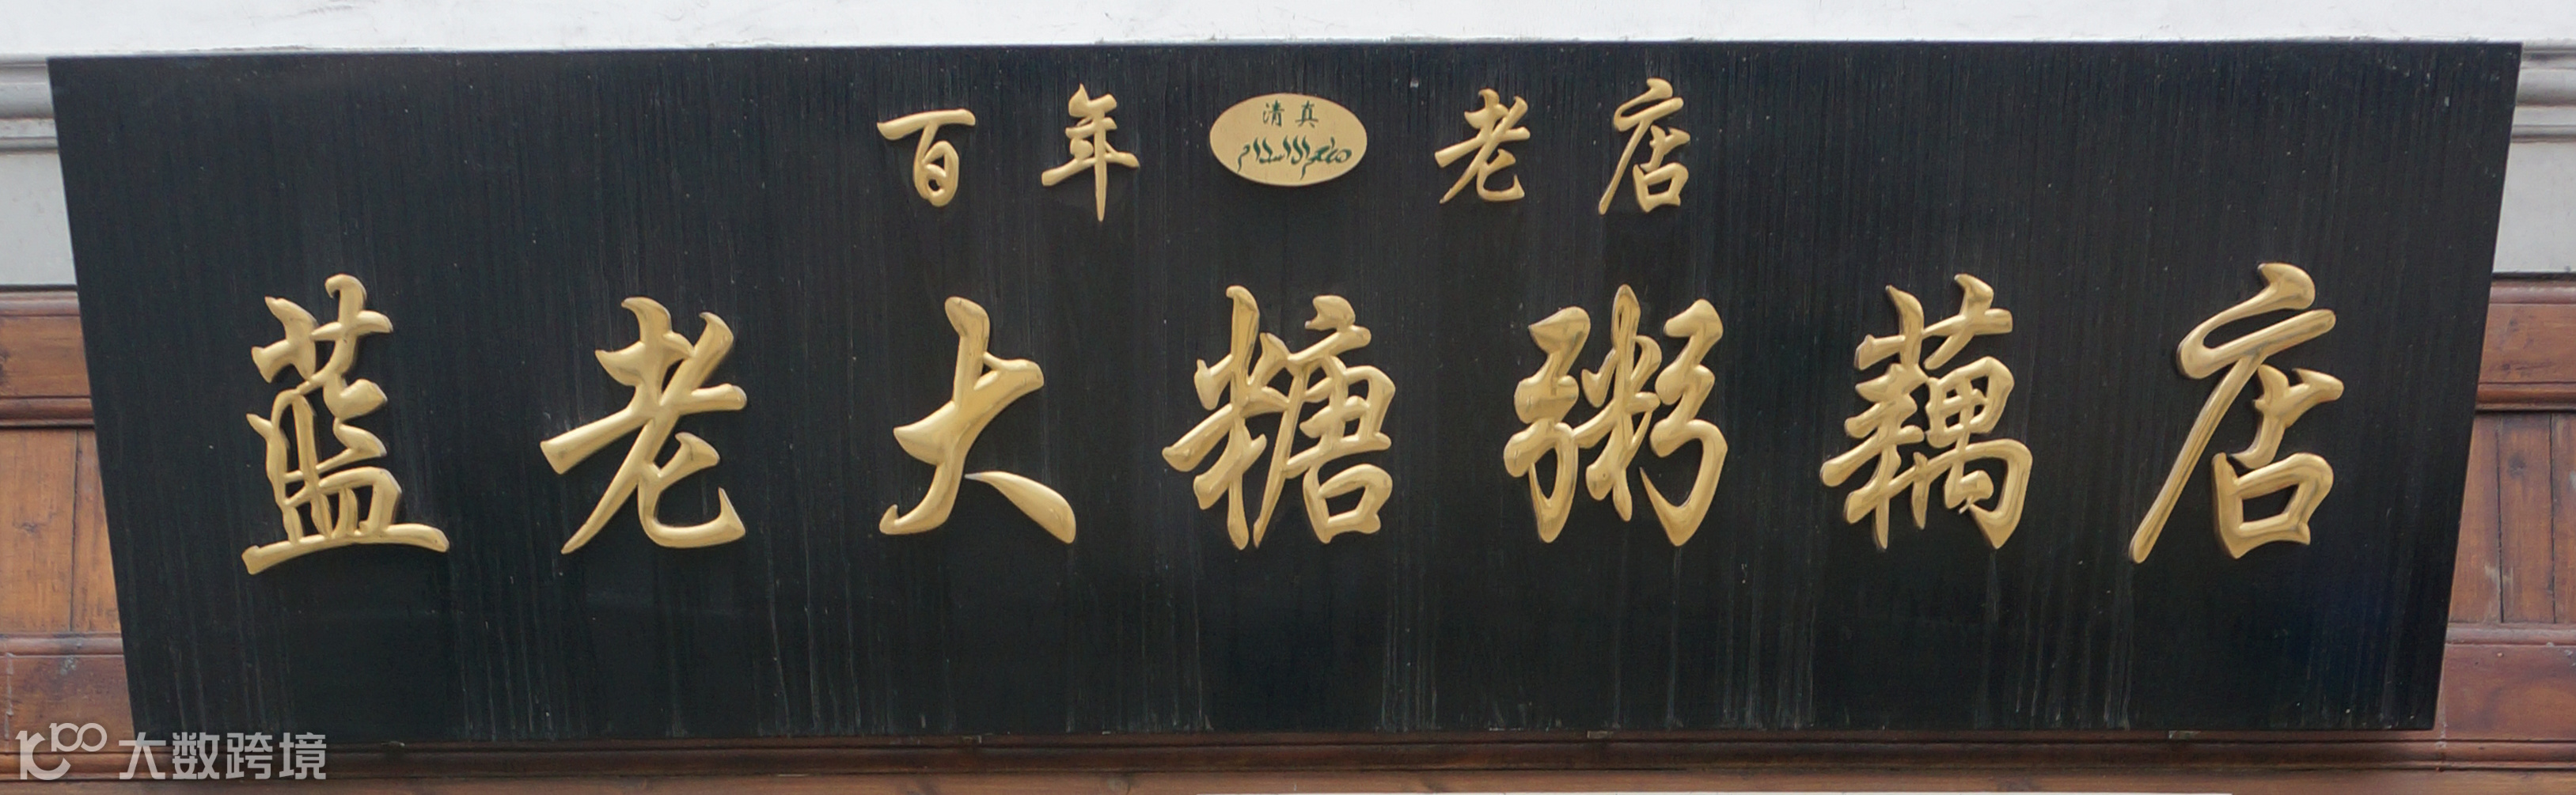 百年 老店
清真
蓝老大糖粥藕店
大数跨境